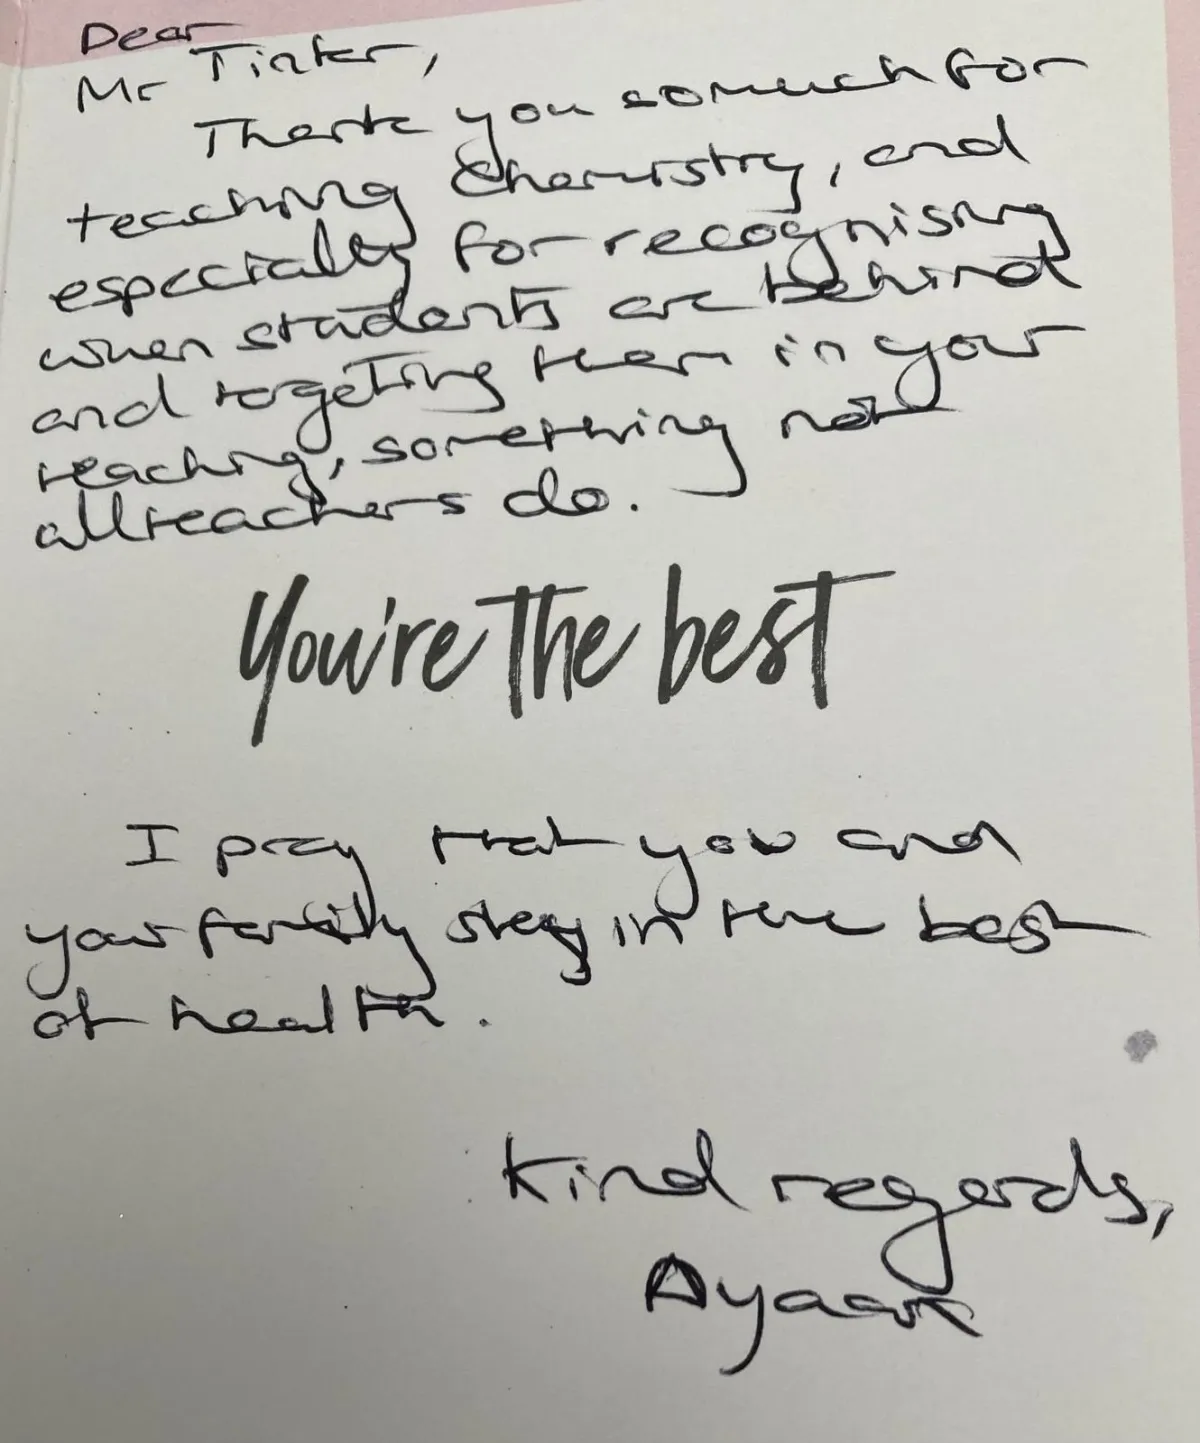 Dear
Mr Tinker,
Thank you so much for
teaching Chemistry, and
especially for recognising
when students are behind
and targeting them in your
teaching, something not
all teachers do.
You're the best
I pray that you and
your family stay in the best
of health.
Kind regards,
Ayaan